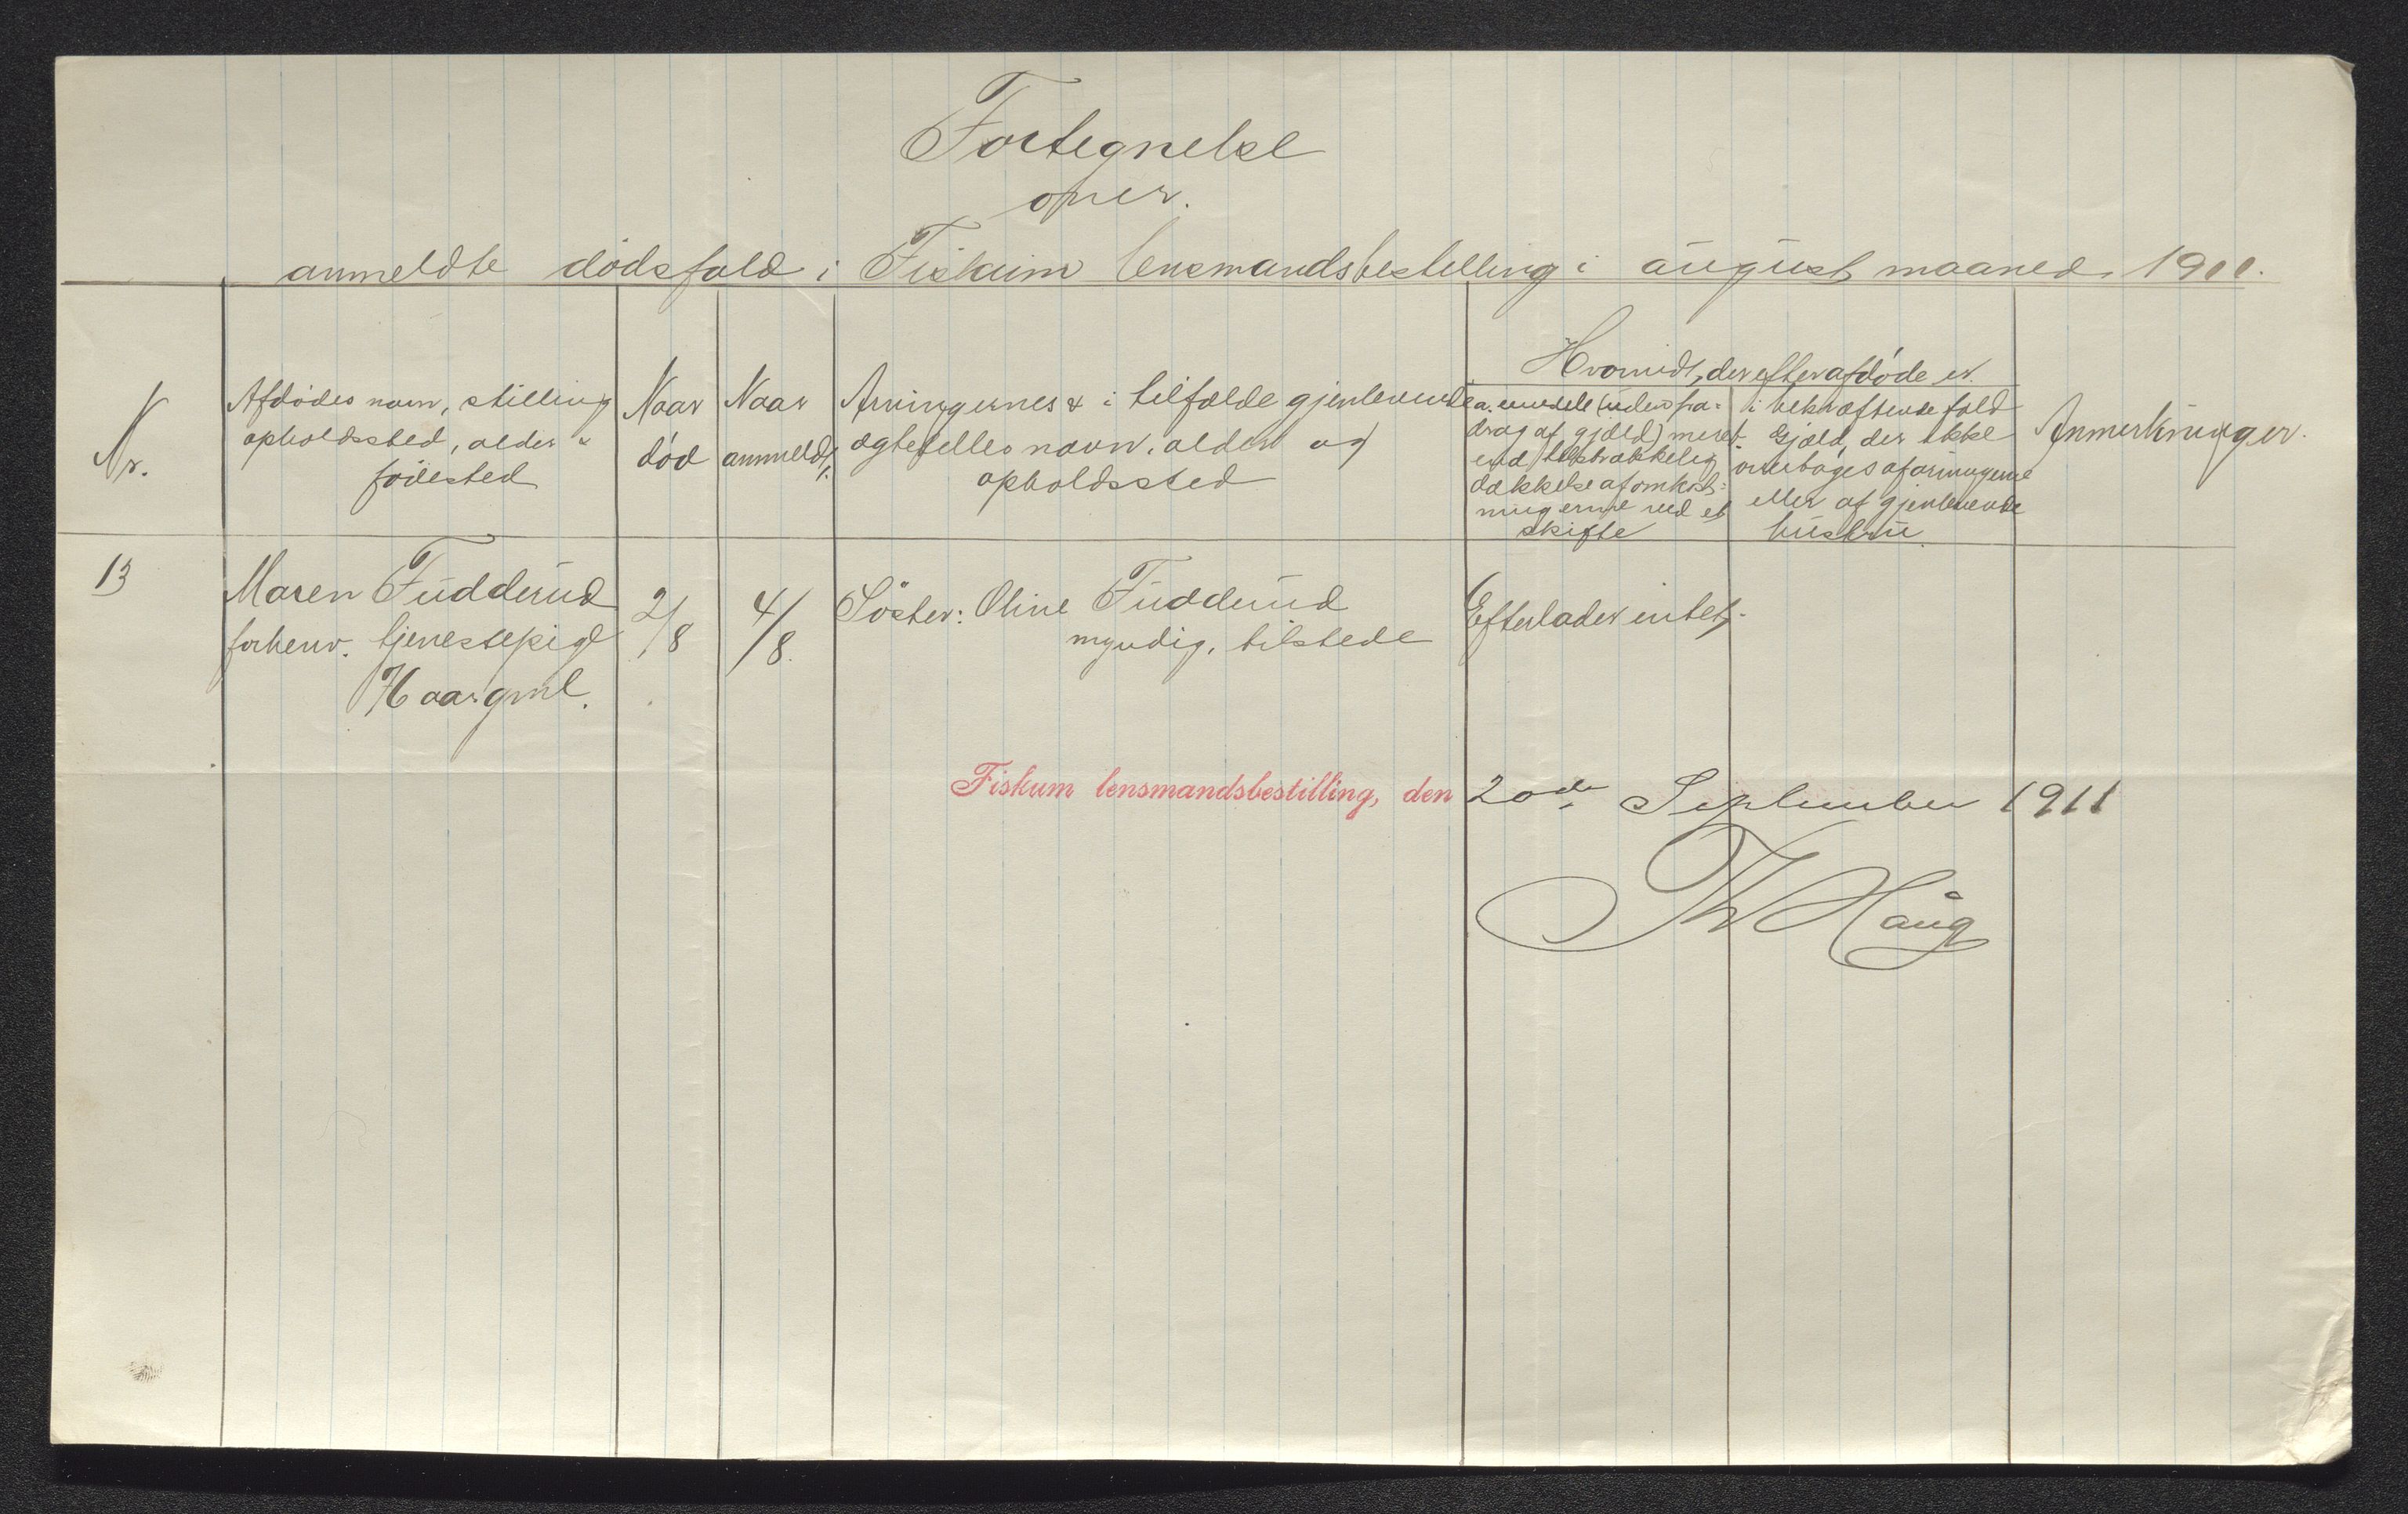 Fortegnelse
over.
anmeldte dødsfald i Fiskum lensmandsbestilling i august maaned 1911.
Nr.
Afdødes navn, stilling
opholdssted, alder &
födested
Naar
död
Naar
anmeldt.
Arvingernes & i tilfælde gjenlevende
ægtefælles navn, alder og
opholdssted
Hvorvidt, der efter afdøde er
a. midde (uden fra-
drag af gjæld) mere
end tilstrækkelig
dækkelse af omkost-
ningerne ved et
skifte
i bekræftende fald
Gjæld, der ikke
overtages af arvingerne
eller af gjenlevende
hustru.
Anmerkninger.
13
Maren Fudderud
forhenv. tjenestepige
Haar gml.
2/8
4/8.
Söster: Oline Fudderud
myndig, tilstede
Efterlader intet.
Fiskum lensmandsbestilling, den 20de September 1911
Th Haug